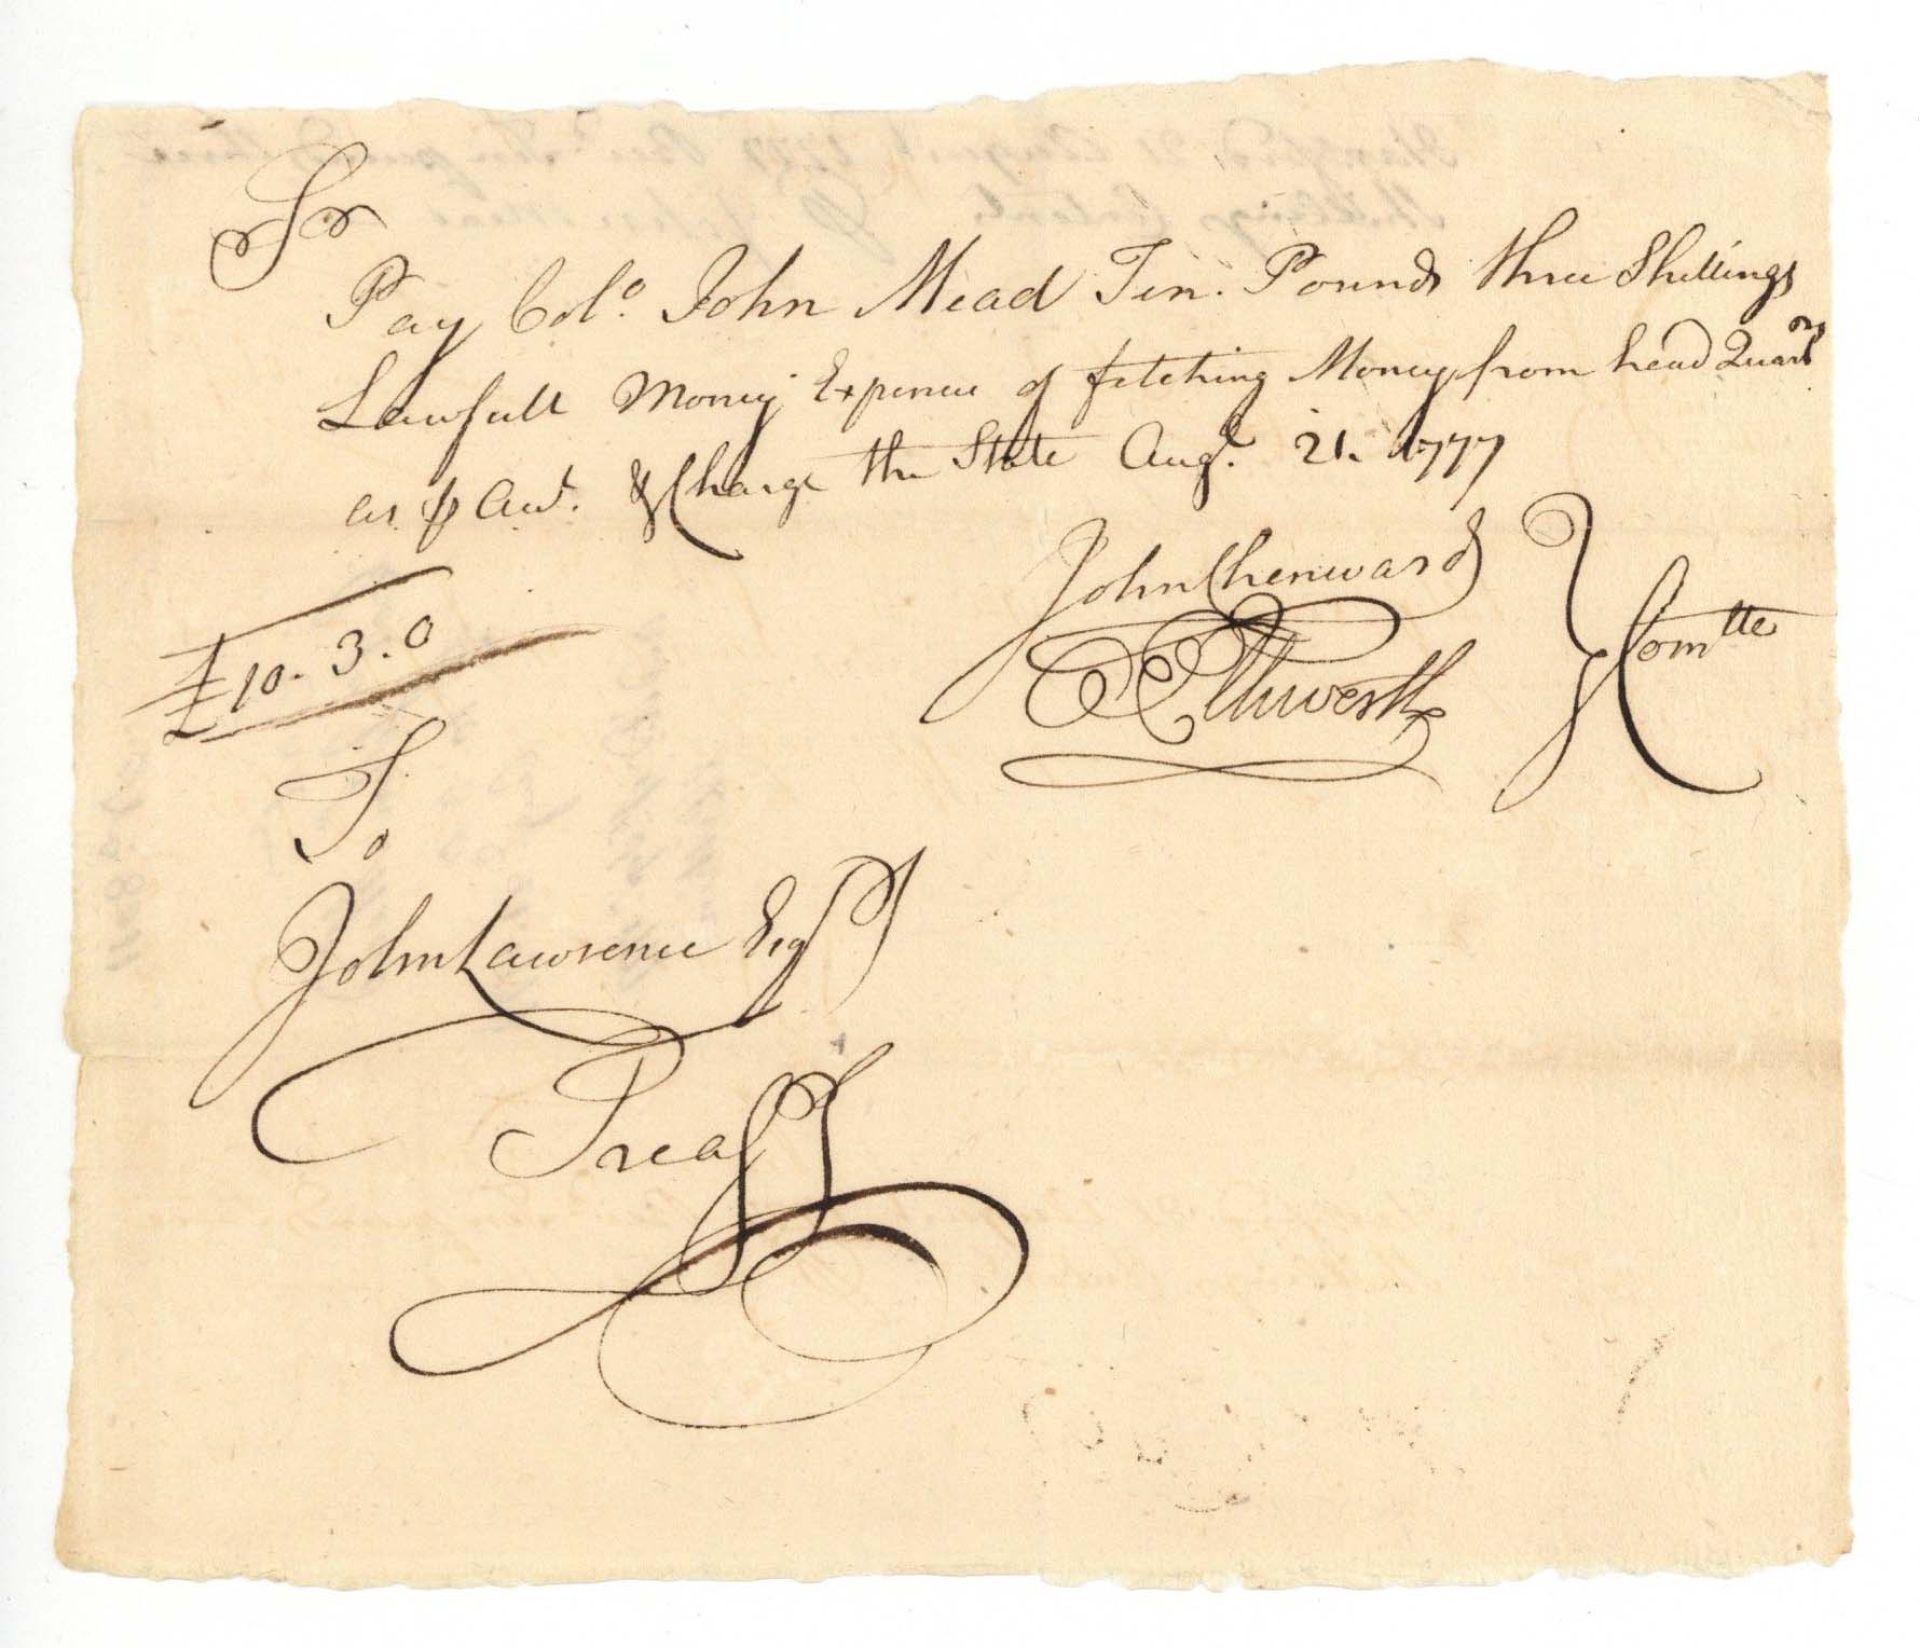 Sr
Pay Colo. John Mead Ten. Pounds three Shillings
Lawfull Money Expence of fetching Money from head Quarts
as ⅌ Acct. & Charge the State Augt. 21. 1777
John Chenward
O Ellsworth
} Comtte
£10.3.0
To
John Lawrence Esqr
Treasr